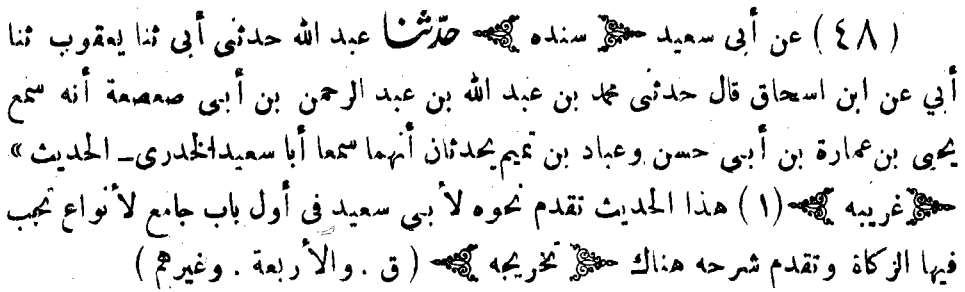 ( ٤٨ ) عن أبى سعيد ﴿ سنده ﴾ حدّثنا عبد الله حدثنى أبى ثنا يعقوب ثنا
أبي عن ابن اسحاق قال حدثنى محمد بن عبد الله بن عبد الرحمن بن أبى صعصعة أنه سمع
يحيى بن عمارة بن أبي حسن وعباد بن تميم يحدثان أنهما سمعا أبا سعيد الخدرى ـ الحديث »
﴿ غريبه ﴾ (١) هذا الحديث تقدم نحوه لأبى سعيد فى أول باب جامع لأنواع تجب
فيها الزكاة وتقدم شرحه هناك ﴿ تخريجه ﴾ ( ق . والأربعة . وغيرهم )